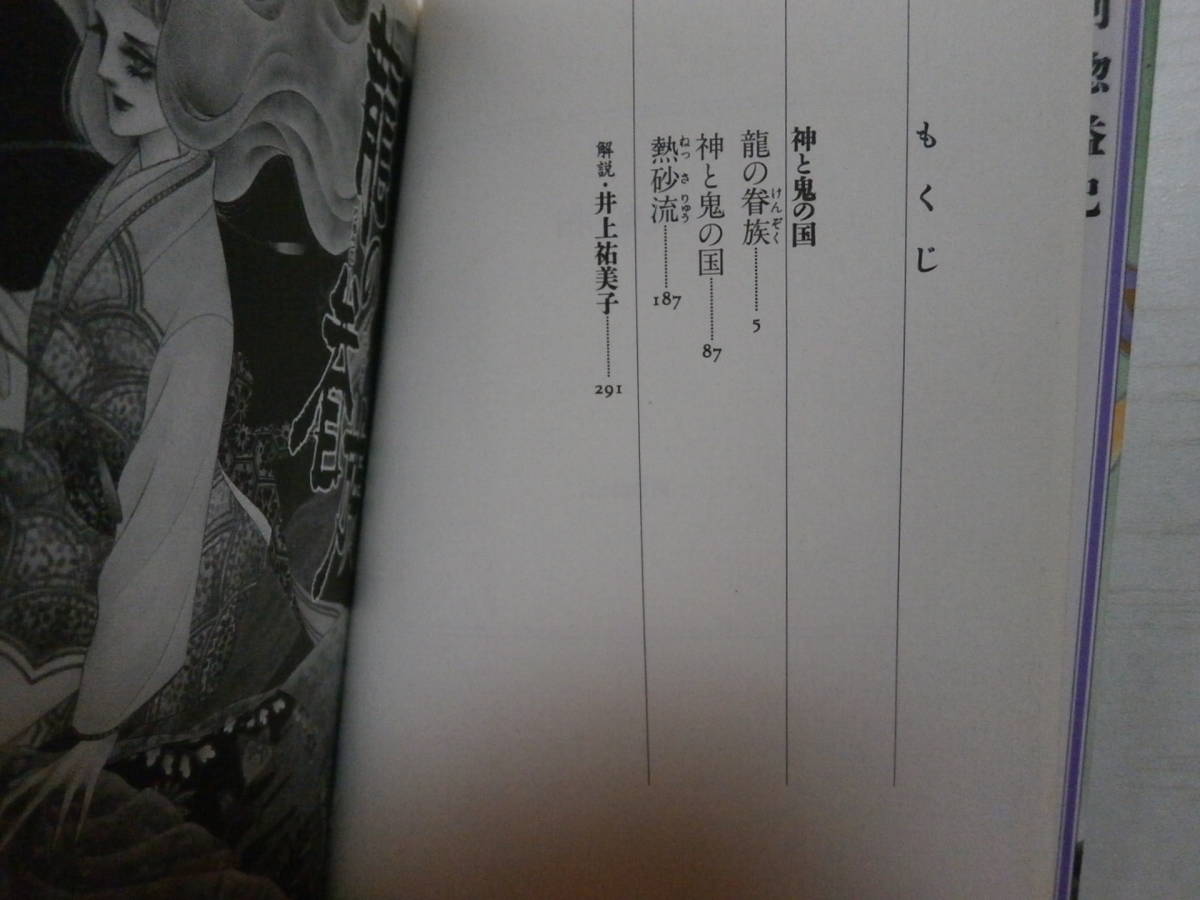 もくじ
神と鬼の国
龍の眷族…………5
けんぞく
神と鬼の国…………87
熱砂流…………187
ねっさりゅう
解説・井上祐美子…………291
龍の眷族